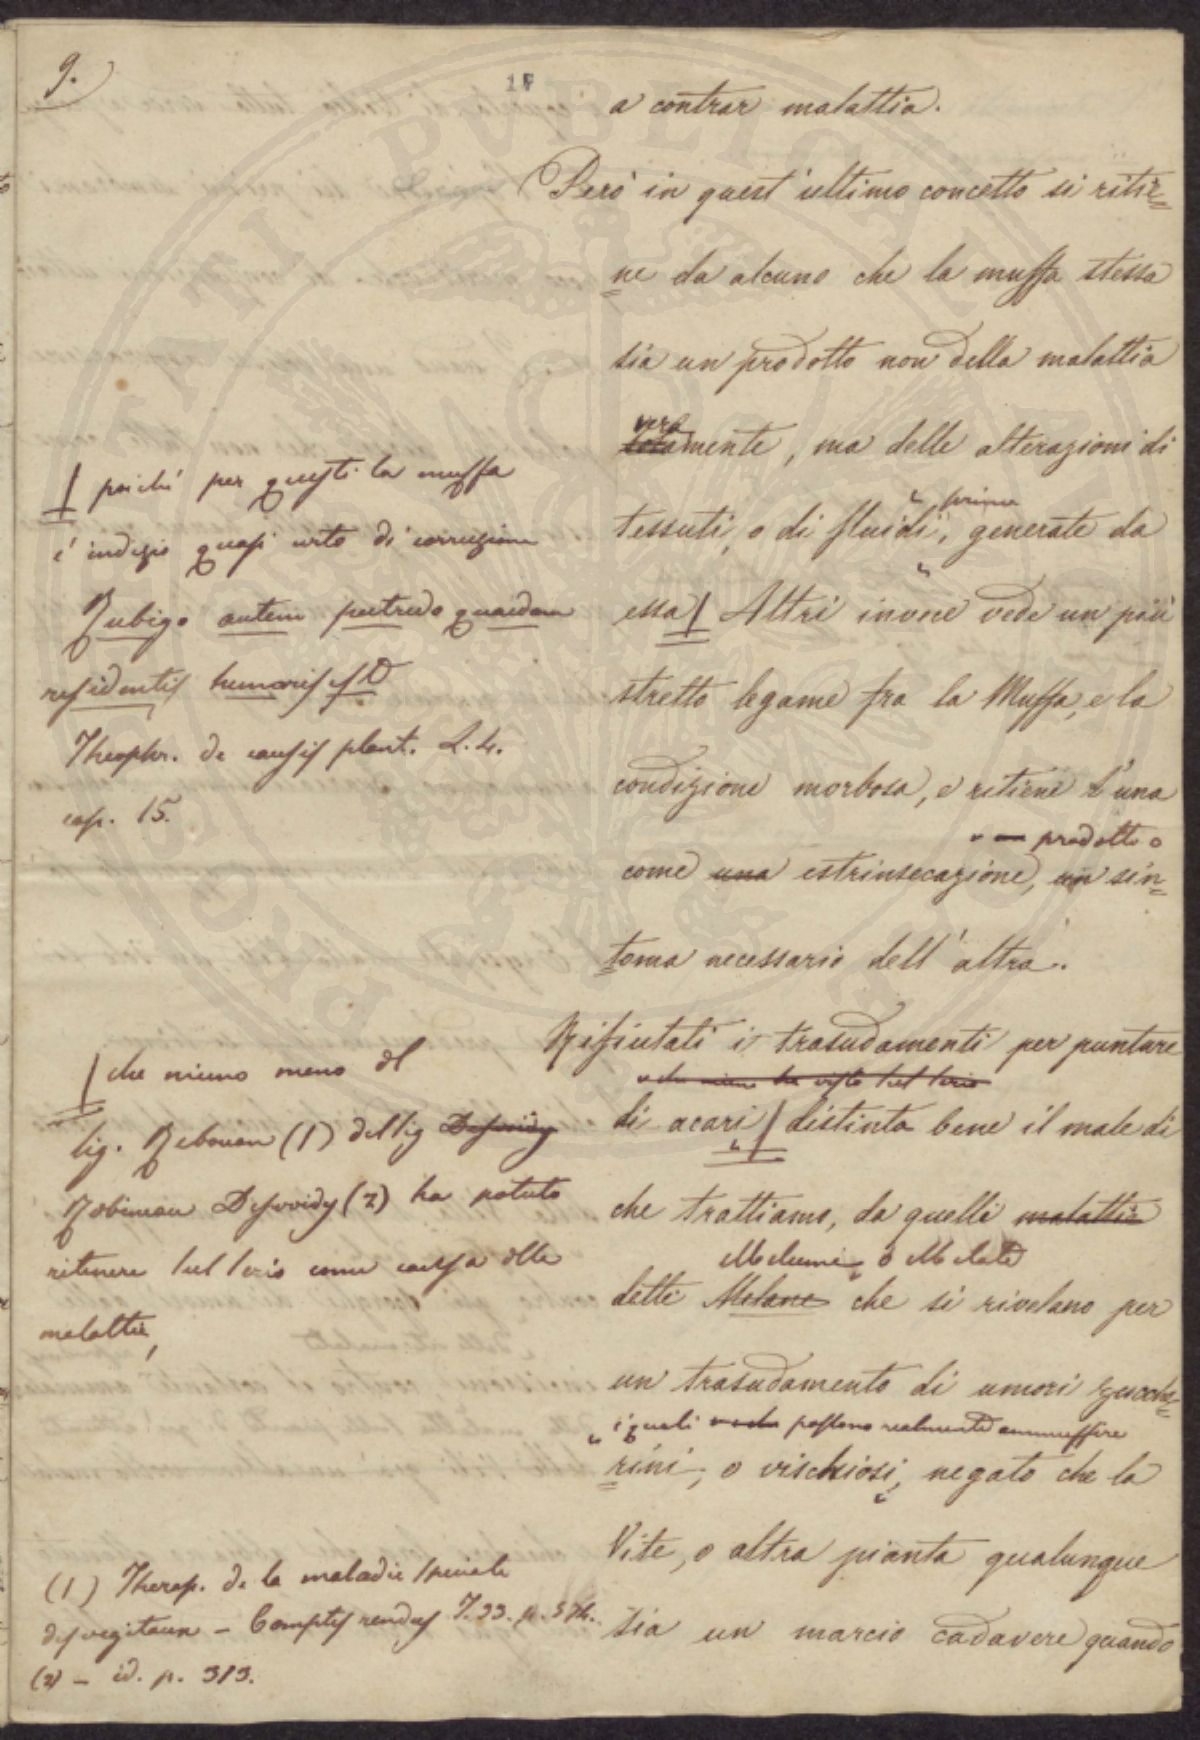 9.
a contrar malattia.
Però in quest'ultimo concetto si ritie=
ne da alcuno che la muffa stessa
sia un prodotto non della malattia
veramente, ma delle alterazioni di
tessuti, o di fluidi, prima generate da
essa Altri invece vede un più
stretto legame fra la Muffa, e la
condizione morbosa, e ritiene l'una
prodotto o
come una estrinsecazione, un sin=
toma necessario dell'altra.
Rifiutati i trasudamenti per punture
di acari distinto bene il male di
che trattiamo, da quelli malattie
Melume o Melata
detti Melane che si rivelano per
un trasudamento di umori zucche=
i quali possono realmente ammuffire
rini, o vischiosi, negato che la
Vite, o altra pianta qualunque
sia un marcio cadavere quando
poichè per questi la muffa
è indizio quasi certo di corruzione
Rubigo autem putredo quaedam
residentis humoris est
Theophr. de causis plant. L. 4.
cap. 15.
che niuno meno il
sig. Robouam (1) del sig Desvoidy
Robineau Desvoidy (2) ha potuto
ritenere sul serio come causa della
malattia,
(1) Therap. de la maladie speciale
des vegetaux – Comptes rendus T. 33. p.
(2) – id. p. 313.